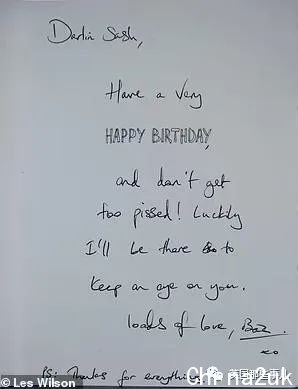 Darlin Sash,
Have a Very
HAPPY BIRTHDAY,
and don't get
too pissed! Luckily
I'll be there to
keep an eye on you.
loads of love, Baz.
xo
Ps: Thanks for everything
Chinazuk
© Les Wilson